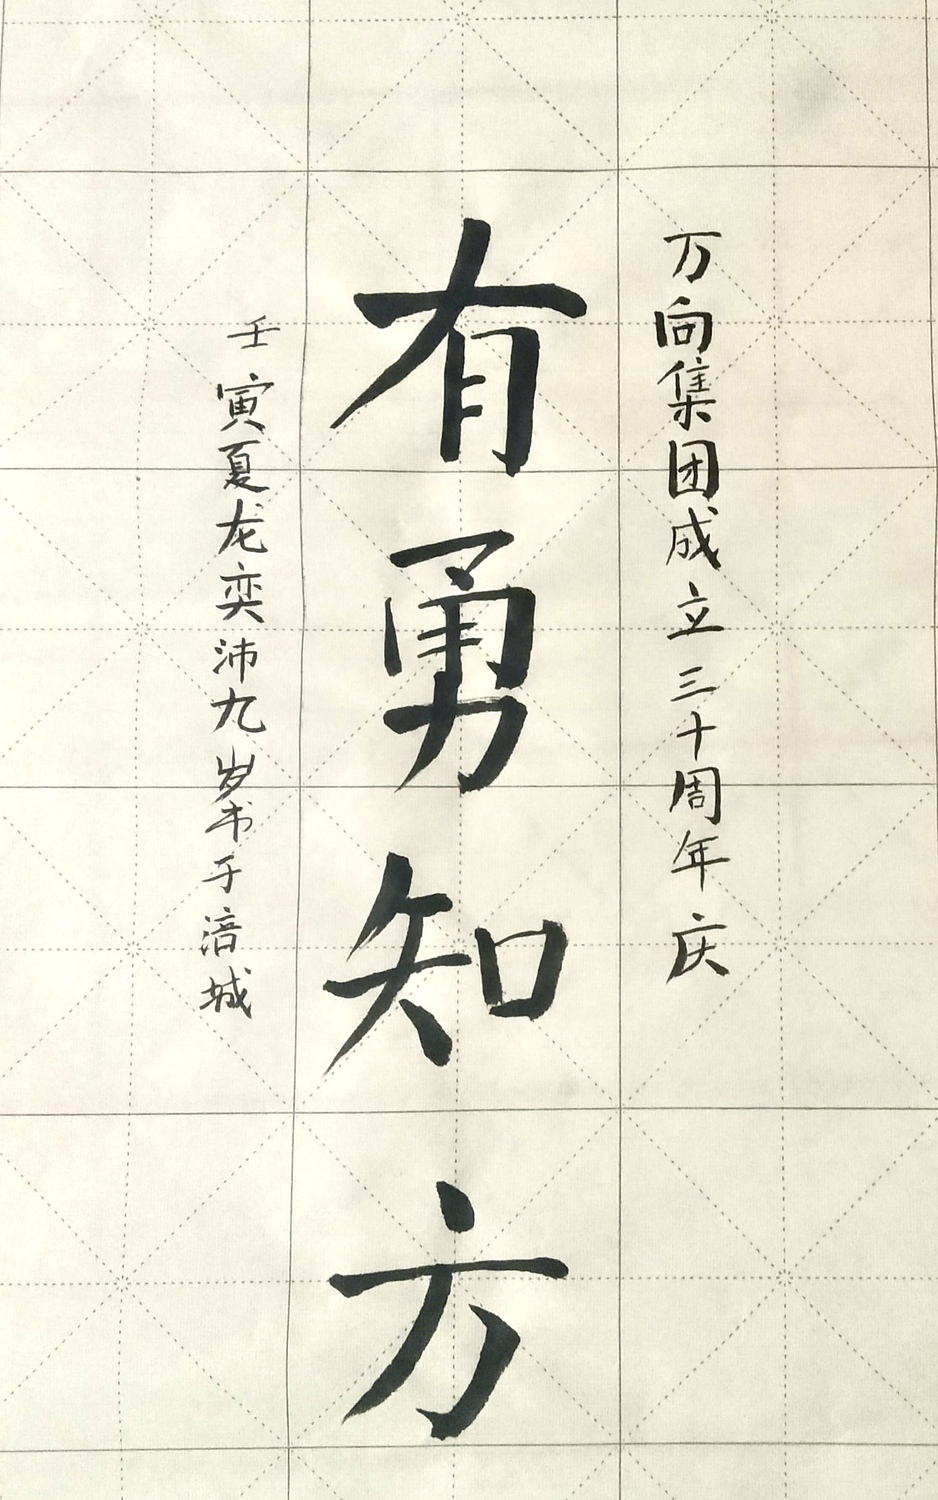 万向集团成立三十周年庆
有勇知方
壬寅夏龙奕沛九岁书于涪城